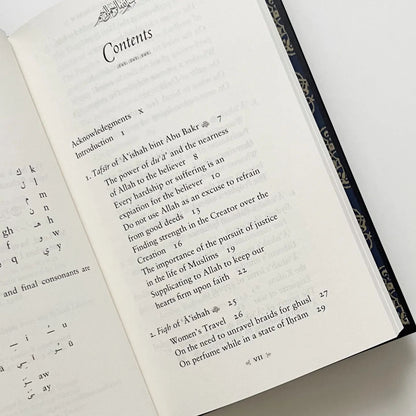 ك k
ل l
م m
ن n
gh ه h
f و w
q ي y
and final consonants are
i u
ī ū
aw
ay
Contents
Acknowledegments x
Introduction 1
1. Tafsīr of ʿĀʾishah bint Abu Bakr 7
The power of duʿāʾ and the nearness
of Allah to the believer 8
Every hardship or suffering is an
expiation for the believer 10
Do not use Allah as an excuse to refrain
from good deeds 13
Finding strength in the Creator over the
Creation 16
The importance of the pursuit of justice
in the life of Muslims 19
Supplicating to Allah to keep our
hearts firm upon faith 22
2. Fiqh of ʿĀʾishah 25
Women's Travel 26
On the need to unravel braids for ghusl 27
On perfume while in a state of Iḥrām 29
VII